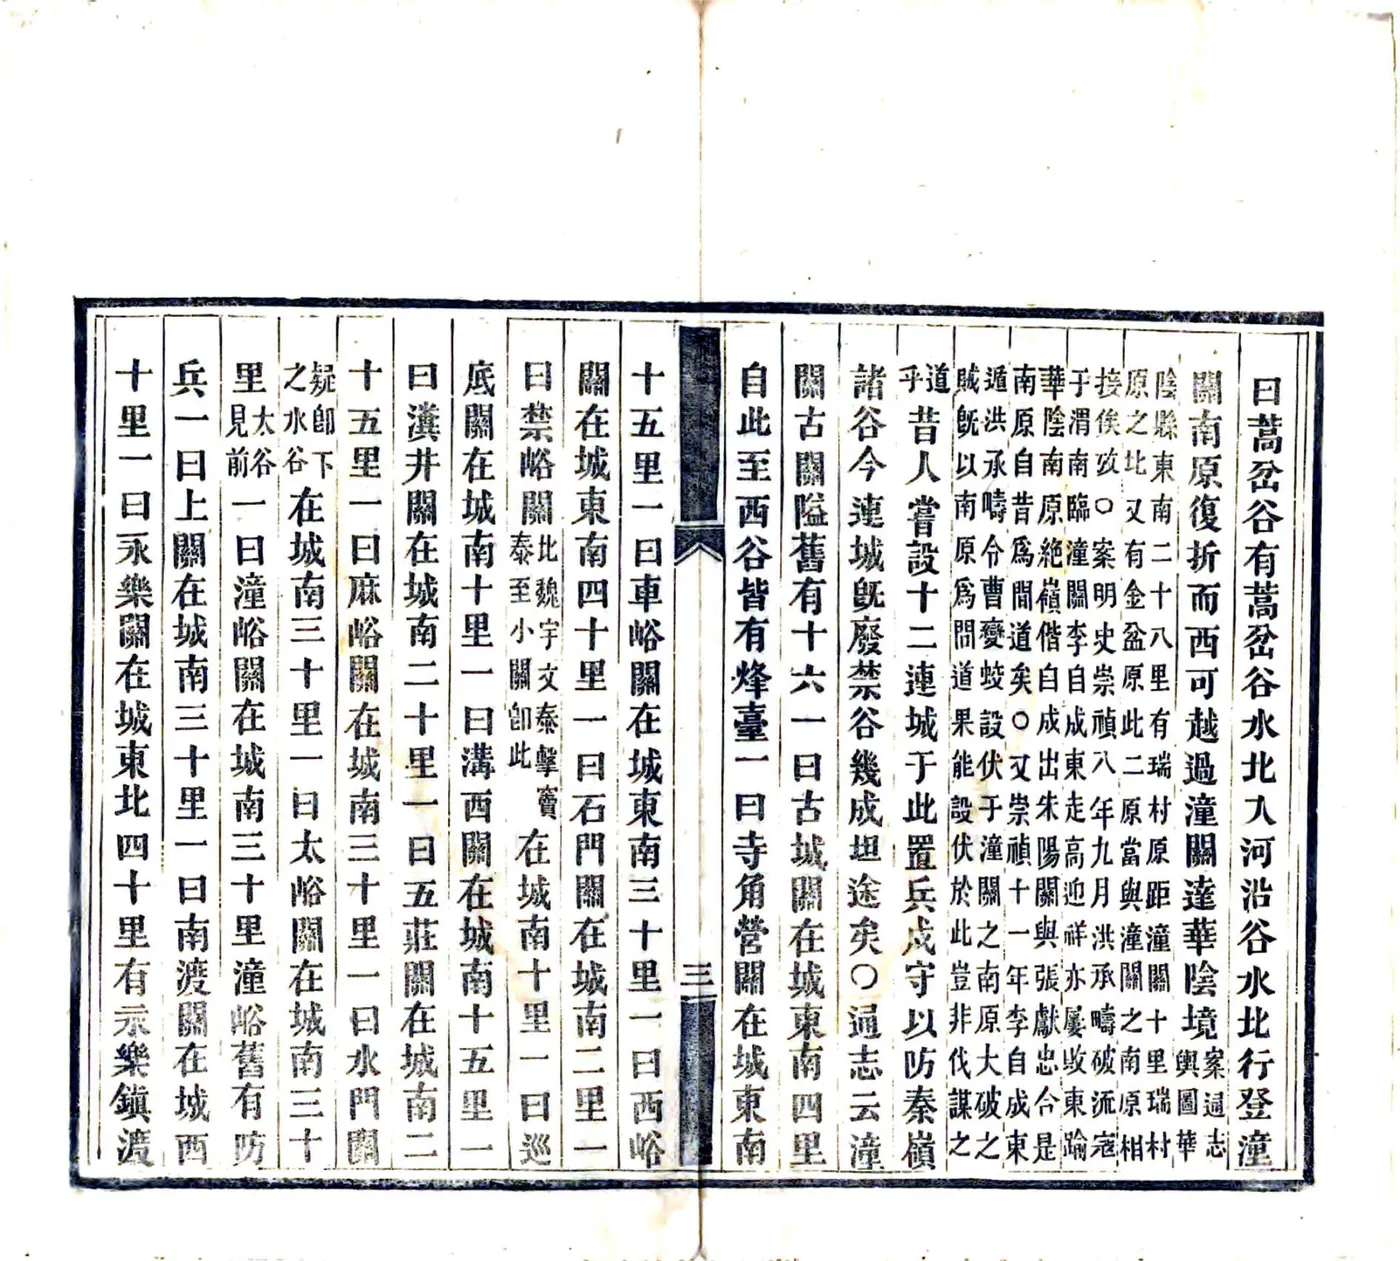 曰蒿岔谷有蒿岔谷水北入河沿谷水北行登潼
關南原復折而西可越過潼關達華陰境案通志輿圖華
陰縣東南二十八里有瑞村原距潼關十里瑞村
原之北又有金盆原此二原當與潼關之南原相
接俟攷○案明史崇禎八年九月洪承疇破流寇
于渭南臨潼關李自成東走高迎祥亦屢敗東踰
華陰南原絶嶺偕自成出朱陽關與張獻忠合是
南原自昔爲間道矣○又崇禎十一年李自成東
遁洪承疇令曹變蛟設伏于潼關之南原大破之
賊旣以南原爲間道果能設伏於此豈非伐謀之
道乎昔人嘗設十二連城于此置兵戍守以防秦嶺
諸谷今連城旣廢禁谷幾成坦途矣○通志云潼
關古關隘舊有十六一曰古城關在城東南四里
自此至西谷皆有烽臺一曰寺角營關在城東南
三
十五里一曰車峪關在城東南三十里一曰西峪
關在城東南四十里一曰石門關在城南二里一
曰禁峪關北魏宇文泰擊竇泰至小關卽此在城南十里一曰巡
底關在城南十里一曰溝西關在城南十五里一
曰潩井關在城南二十里一曰五莊關在城南二
十五里一曰麻峪關在城南三十里一曰水門關
疑卽下之水谷在城南三十里一曰太峪關在城南三十
里太谷見前一曰潼峪關在城南三十里潼峪舊有防
兵一曰上關在城南三十里一曰南渡關在城西
十里一曰永樂關在城東北四十里有永樂鎮渡